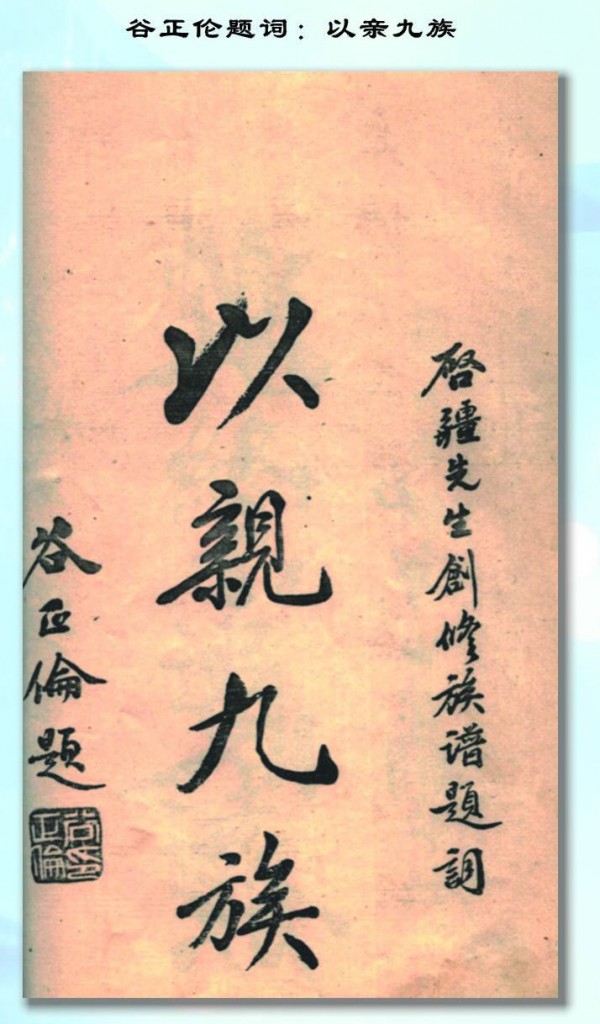 谷正伦题词：以亲九族
啓疆先生創修族譜題詞
以親九族
谷正倫題
谷正倫印